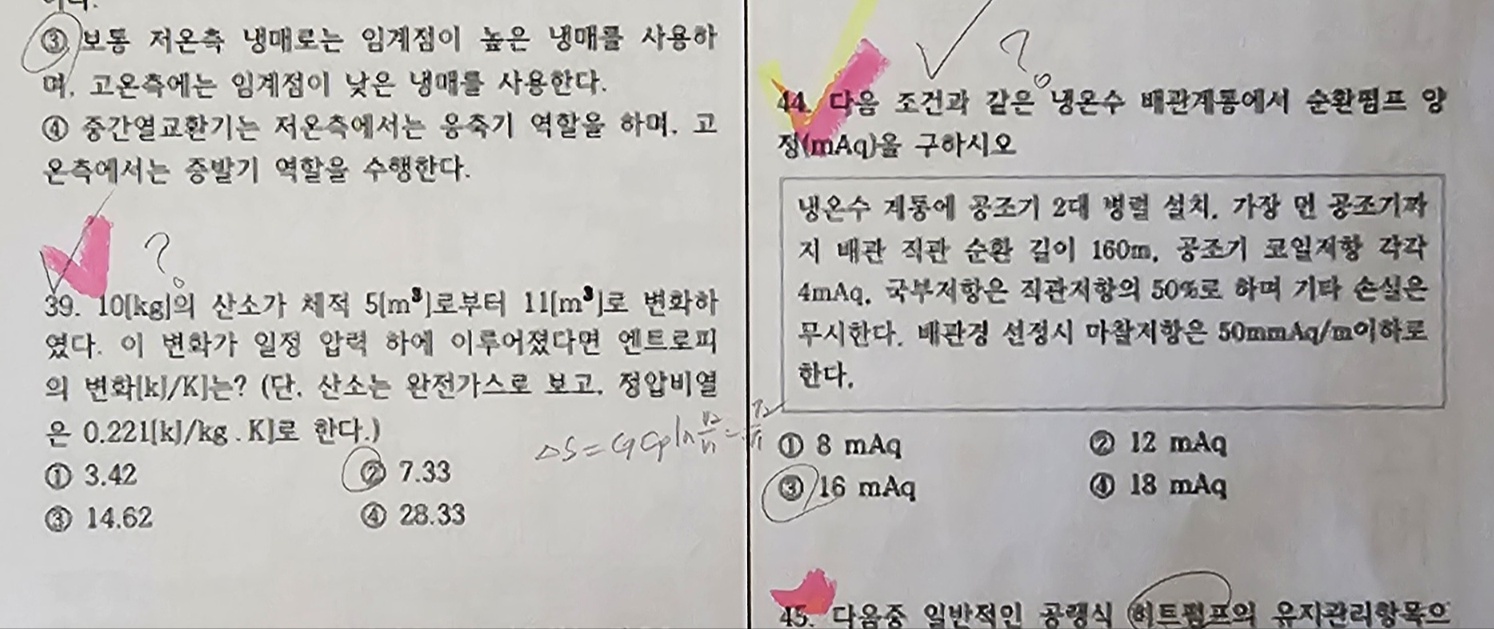 ③ 보통 저온측 냉매로는 임계점이 높은 냉매를 사용하
며, 고온측에는 임계점이 낮은 냉매를 사용한다.
④ 중간열교환기는 저온측에서는 응축기 역할을 하며, 고
온측에서는 증발기 역할을 수행한다.
?
39. 10[kg]의 산소가 체적 5[m³]로부터 11[m³]로 변화하
였다. 이 변화가 일정 압력 하에 이루어졌다면 엔트로피
의 변화[kJ/K]는? (단, 산소는 완전가스로 보고, 정압비열
은 0.221[kJ/kg.K]로 한다.)
① 3.42 ② 7.33
③ 14.62 ④ 28.33
△S = GCp ln
?
44. 다음 조건과 같은 냉온수 배관계통에서 순환펌프 양
정(mAq)을 구하시오
냉온수 계통에 공조기 2대 병렬 설치, 가장 먼 공조기까
지 배관 직관 순환 길이 160m, 공조기 코일저항 각각
4mAq, 국부저항은 직관저항의 50%로 하며 기타 손실은
무시한다. 배관경 선정시 마찰저항은 50mmAq/m이하로
한다.
① 8 mAq ② 12 mAq
③ 16 mAq ④ 18 mAq
45. 다음중 일반적인 공랭식 히트펌프의 유지관리항목으